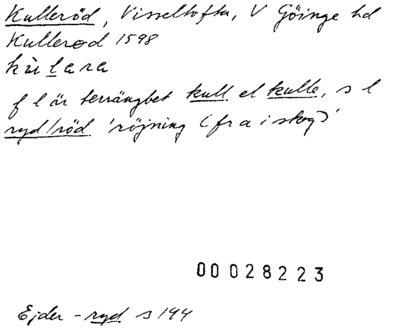 Kulleröd, Visseltofta, V Göinge hd
Kullerod 1598
kùlara
f l är terrängbet kull el kulle, s l
ryd/röd 'röjning (fra i skog)'
00028223
Ejder - ryd s 144